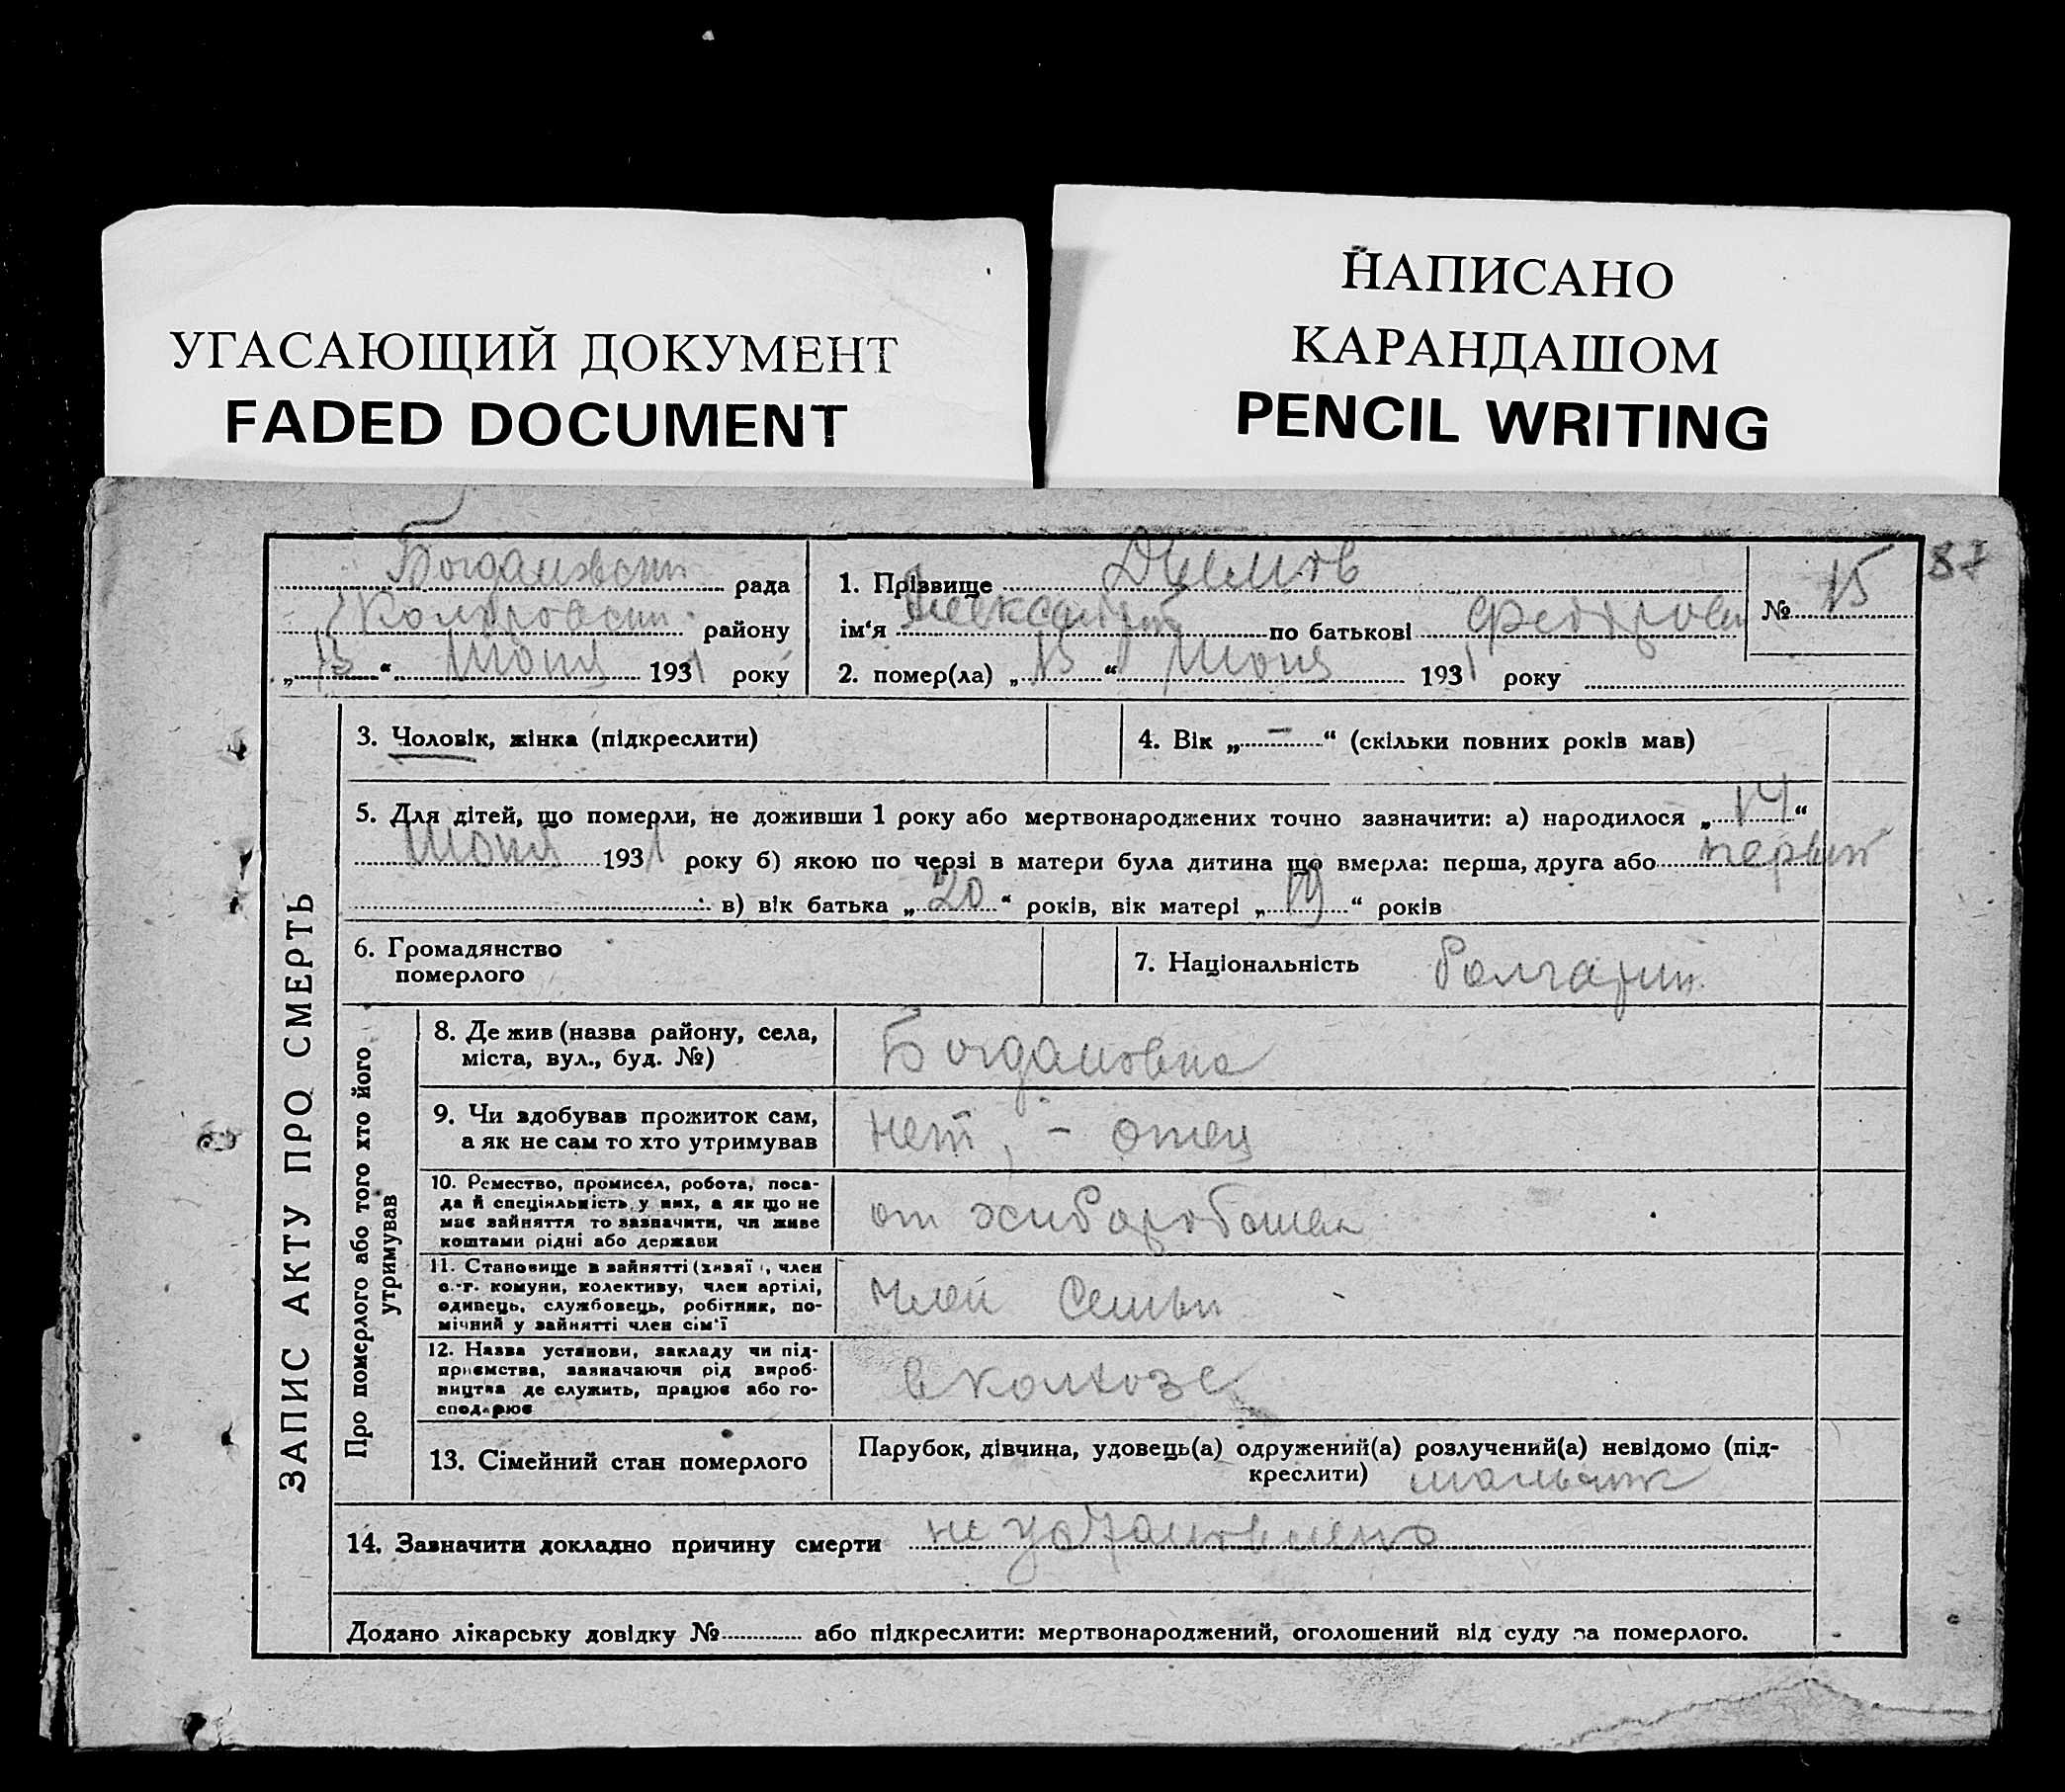 УГАСАЮЩИЙ ДОКУМЕНТ
FADED DOCUMENT
НАПИСАНО
КАРАНДАШОМ
PENCIL WRITING
рада
району
„ “ Июня 1931 року
1. Прізвище
ім‘я Александр по батькові
2. помер(ла) „15“ Июня 1931 року
№ 15
87
ЗАПИС АКТУ ПРО СМЕРТЬ
3. Чоловік, жінка (підкреслити)
4. Вік „–“ (скільки повних років мав)
5. Для дітей, що померли, не доживши 1 року або мертвонароджених точно зазначити: а) народилося „14“
Июня 1931 року б) якою по черзі в матери була дитина що вмерла: перша, друга або первый
в) вік батька „20“ років, вік матері „19“ років
6. Громадянство
померлого
7. Національність болгарин
Про померлого або того хто його
утримував
8. Де жив (назва району, села,
міста, вул., буд. №)
Богдановка
9. Чи здобував прожиток сам,
а як не сам то хто утримував
нет, – отец
10. Ремество, промисел, робота, поса-
да й спеціяльність у них, а як що не
має зайняття то зазначити, чи живе
коштами рідні або держави
от
11. Становище в зайнятті (хазяї , член
с.-г. комуни, колективу, член артілі,
одивець, службовець, робітник, по-
мічний у зайнятті член сім‘ї
член Семьи
12. Назва установи, закладу чи під-
приємства, зазначаючи рід вироб-
ництва де служить, працює або го-
сподарює
в колхозе
13. Сімейний стан померлого
Парубок, дівчина, удовець(а) одружений(а) розлучений(а) невідомо (під-
креслити) мальчик
14. Зазначити докладно причину смерти не установлено
Додано лікарську довідку № або підкреслити: мертвонароджений, оголошений від суду за померлого.